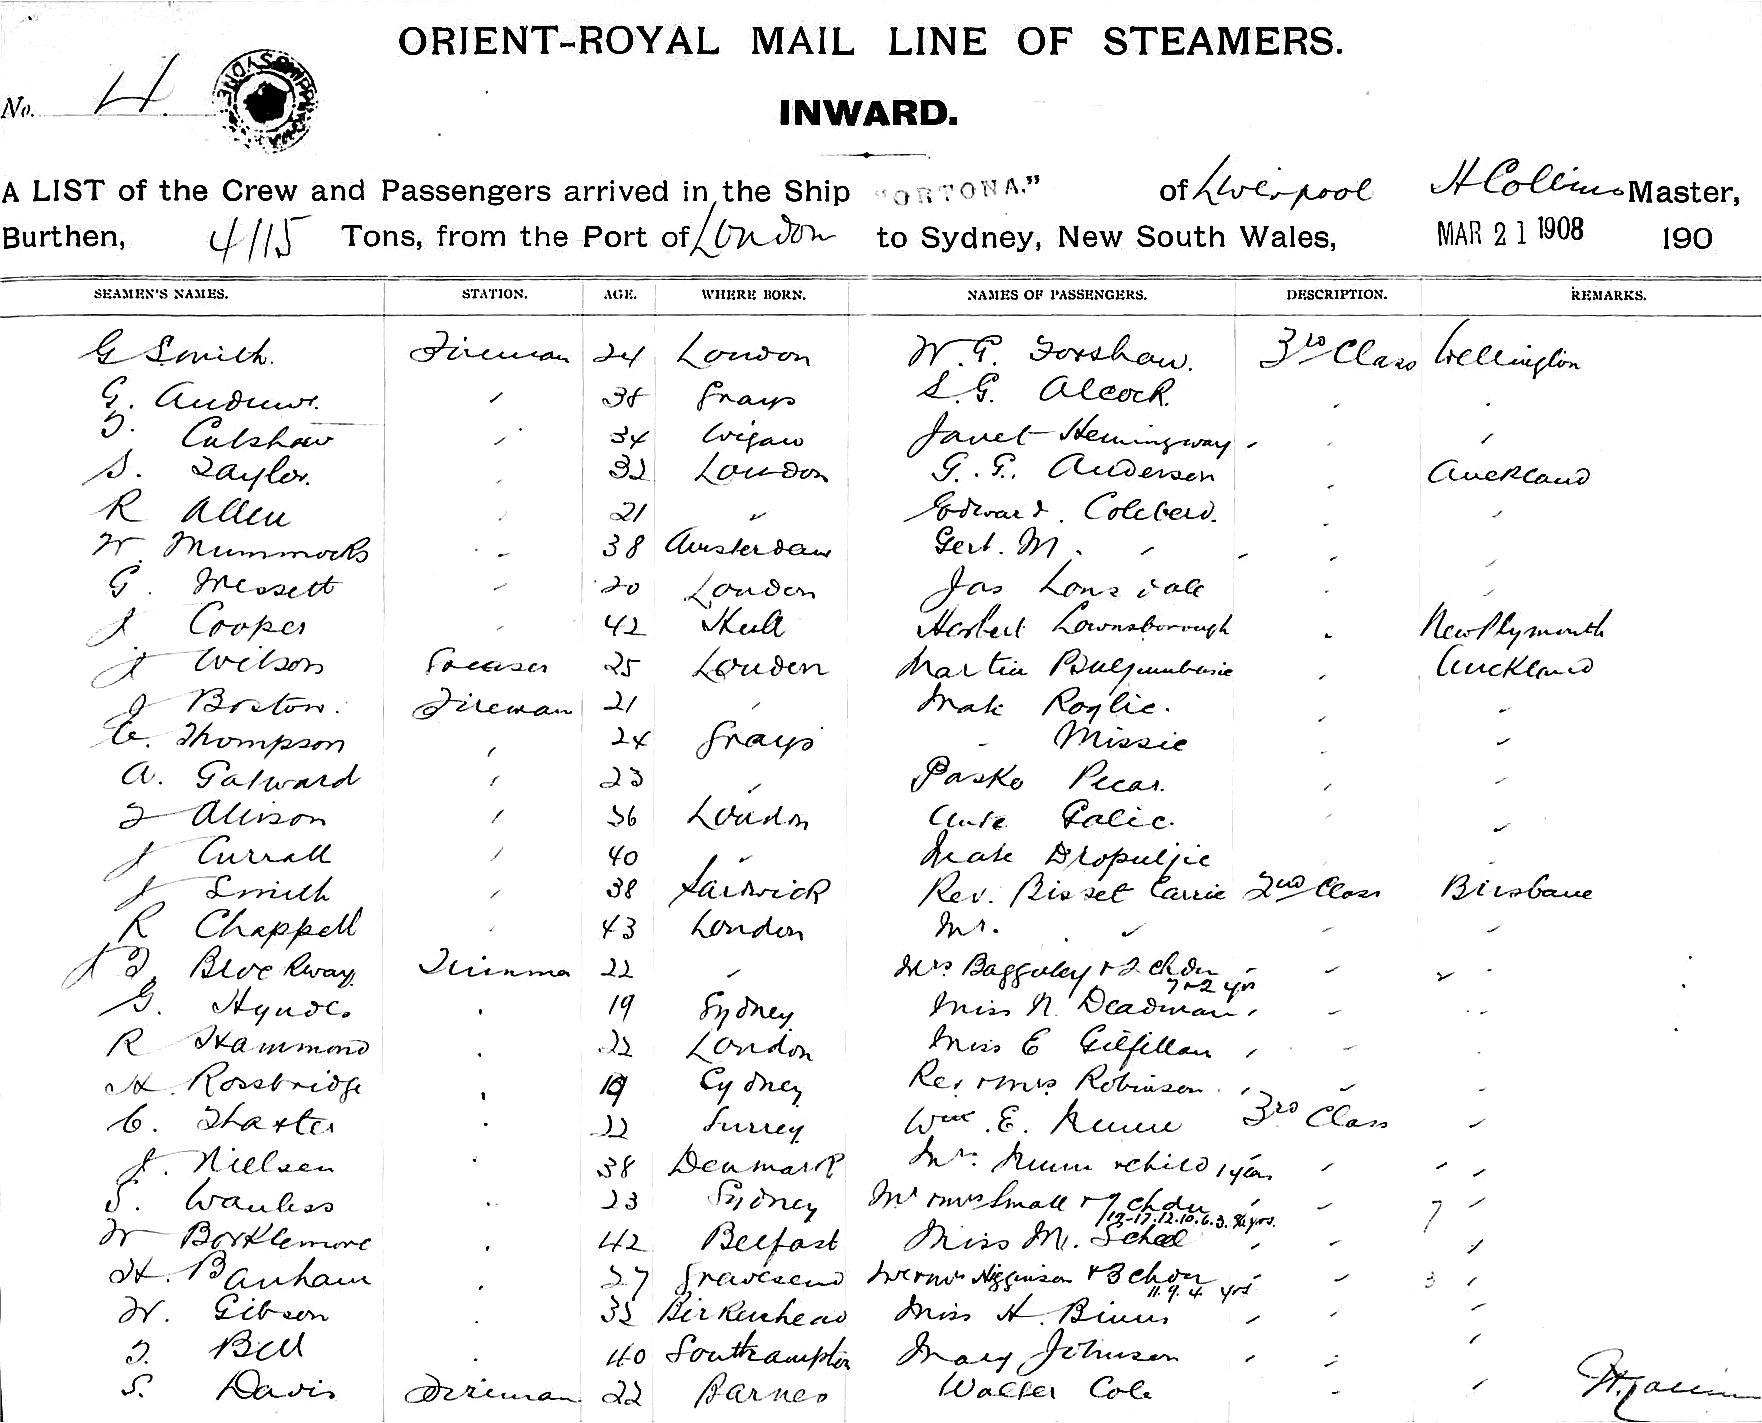 ORIENT-ROYAL MAIL LINE OF STEAMERS.
No. 4.
INWARD.
A LIST of the Crew and Passengers arrived in the Ship "ORTONA." of Liverpool A Collins Master,
Burthen, 4115 Tons, from the Port of London to Sydney, New South Wales, MAR 21 1908 190
SEAMEN'S NAMES. STATION. AGE. WHERE BORN. NAMES OF PASSENGERS. DESCRIPTION. REMARKS.
G Smith. Fireman 24 London W. G. Forshaw. 3rd Class Wellington
G. Andrews. " 38 Grays S. G. Alcock. " "
T. Culshaw " 34 Wigan Janet Hemingway " " "
S. Taylor. " 32 London G. G. Anderson " Auckland
R Allen " 21 " Edward Coleberd. " "
W. Mummocks " 38 Amsterdam Gert. M. " " " "
G. Messett " 20 London Jas Lonsdale " "
J Cooper " 42 Hull Herbert Lownsborough " New Plymouth
J Wilson Greaser 25 London Martin " Auckland
J Boston. Fireman 21 " Mate Roglic. " "
C. Thompson " 24 Grays " Missie " "
A. Galward " 23 " Pasko Pecar. " "
T Allison " 36 London Ante Galic. " "
J Currall " 40 " Mate Dropuljic " "
J Smith " 38 Rev. Bisset Carrie 2nd Class Brisbane
R Chappell " 43 London Mr. " " "
J T. Blockway. Trimmer 22 " Mrs Bagguley & 2 chdn " " "
7 & 2 yrs
G. Hynds. " 19 Sydney Miss N. Deadman " " "
R Hammond " 22 London Miss E Gilfillan " " "
A. Rossbridge " 19 Sydney Rev & Mrs Robinson " " "
C. Thaxter " 22 Surrey Wm. E. Nunn 3rd Class "
J. Nielsen " 38 Denmark Mrs. Nunn & child 1 year " " "
S. Wanless " 23 Sydney Mr & Mrs Small & 7 chdn " " 7 "
W Borklemore " 42 Belfast Miss M. Scheel " " "
H. Banham " 27 Gravesend Mr & Mrs Higginson & 3 chdn " " 3 "
11. 9. 4 yrs
W. Gibson " 32 Birkenhead Miss H. Binns " " "
T. Bell " 40 Southampton Mary Johnson " " "
S. Davis Fireman 22 Barnes Walter Cole " "